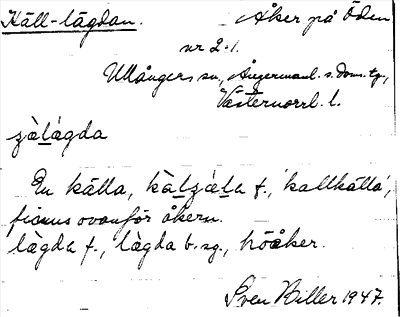 Käll-lägdan. Åker på Öden
nr 2:1.
Ullångers sn, Ångermanl. s. doms. tg.,
Västernorrl. l.
zàlágda
En källa, kàlzæla f., 'kallkälla',
finns ovanför åkern.
lägda f., lägda b. sg., höåker.
Sven Biller 1947.